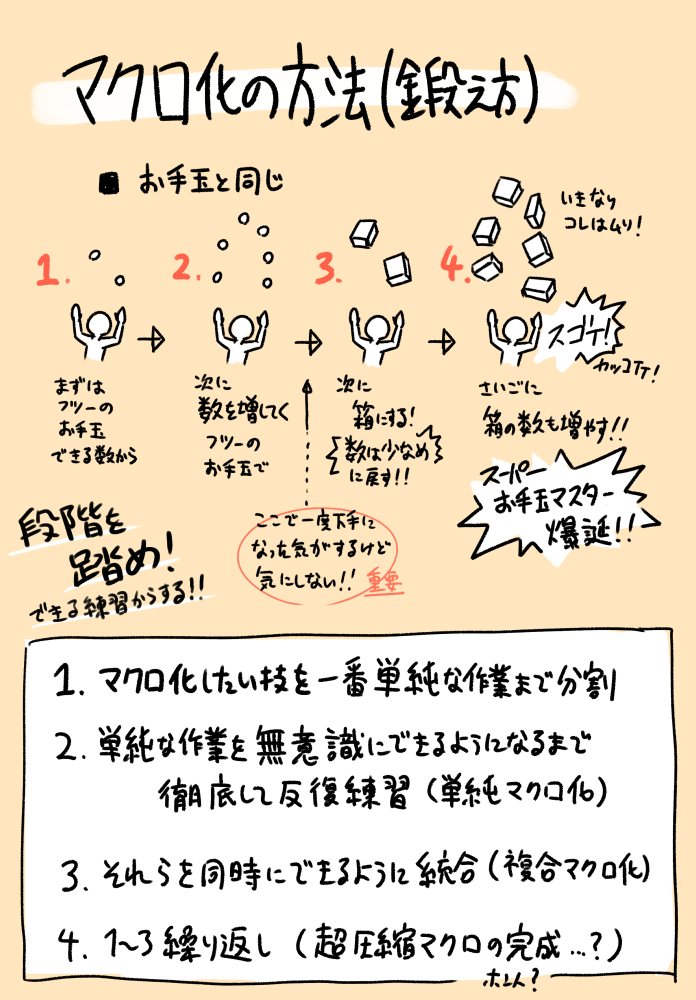 マクロ化の方法(鍛え方)
■ お手玉と同じ
いきなり
コレはムリ!
1.
2.
3.
4.
スゴイ!
カッコイイ!
まずは
フツーの
お手玉
できる数から
次に
数を増してく
フツーの
お手玉で
次に
箱にする!
数は少なめ
に戻す!!
さいごに
箱の数も増やす!!
スーパー
お手玉マスター
爆誕!!
ここで一度下手に
なった気がするけど
気にしない!! 重要
段階を
踏め!
できる練習からする!!
1. マクロ化したい技を一番単純な作業まで分割
2. 単純な作業を無意識にできるようになるまで
徹底して反復練習(単純マクロ化)
3. それらを同時にできるように統合(複合マクロ化)
4. 1〜3繰り返し(超圧縮マクロの完成…?)
ホント?